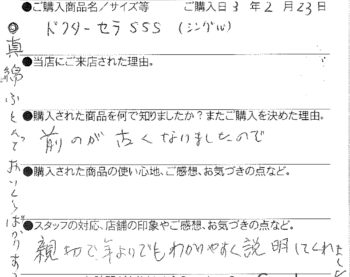 ●ご購入商品名／サイズ等　ご購入日 3 年 2 月 23 日
ドクターセラ SSS (シングル)
●当店にご来店された理由。
●購入された商品を何で知りましたか？またご購入を決めた理由。
前のが古くなりましたので
●購入された商品の使い心地、ご感想、お気づきの点など。
●スタッフの対応、店舗の印象やご感想、お気づきの点など。
親切で年よりでもわかりやすく説明してくれました
真綿ふとんって